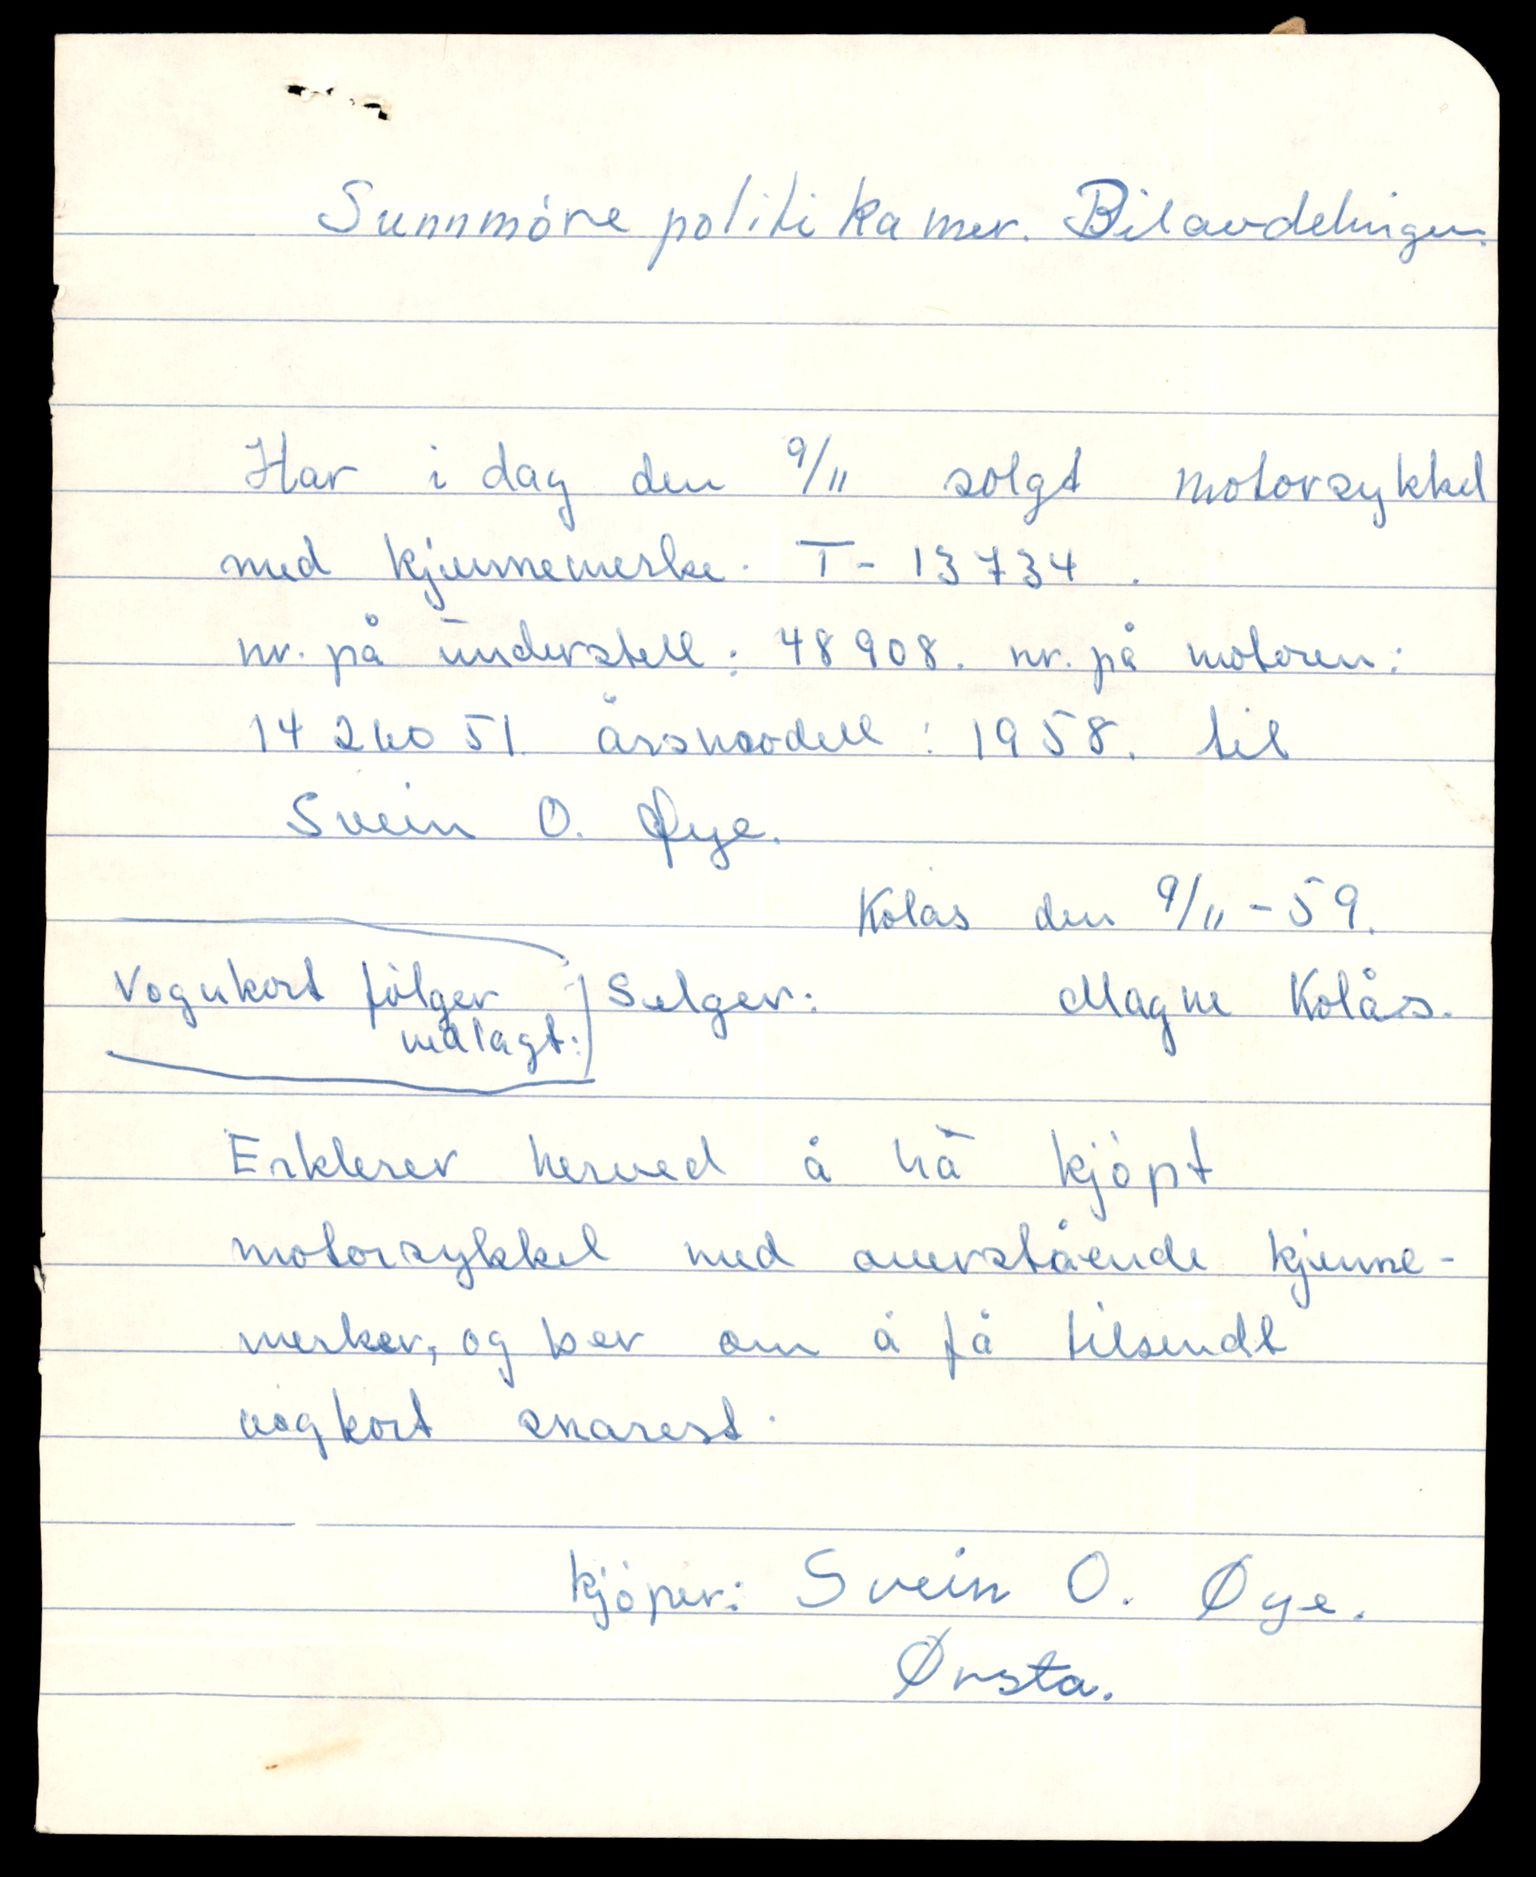 Sunnmóre politikamer. Bilavdelingen.
Har i dag den 9/11 solgt motorsykkel
med kjennemerke. T- 13734.
nr. på understell: 48908. nr. på motoren:
årsmodell: 1958. til
Svein O. Øye.
Kolås den 9/11-59.
Vognkort fölger
vedlagt:
Selger: Magne Kolås.
Erklerer herved å ha kjöpt
motorsykkel med overstående kjenne-
merker, og ber om å få tilsendt
vogkort snarest.
kjóper: Svein O. Øye.
Ørsta.